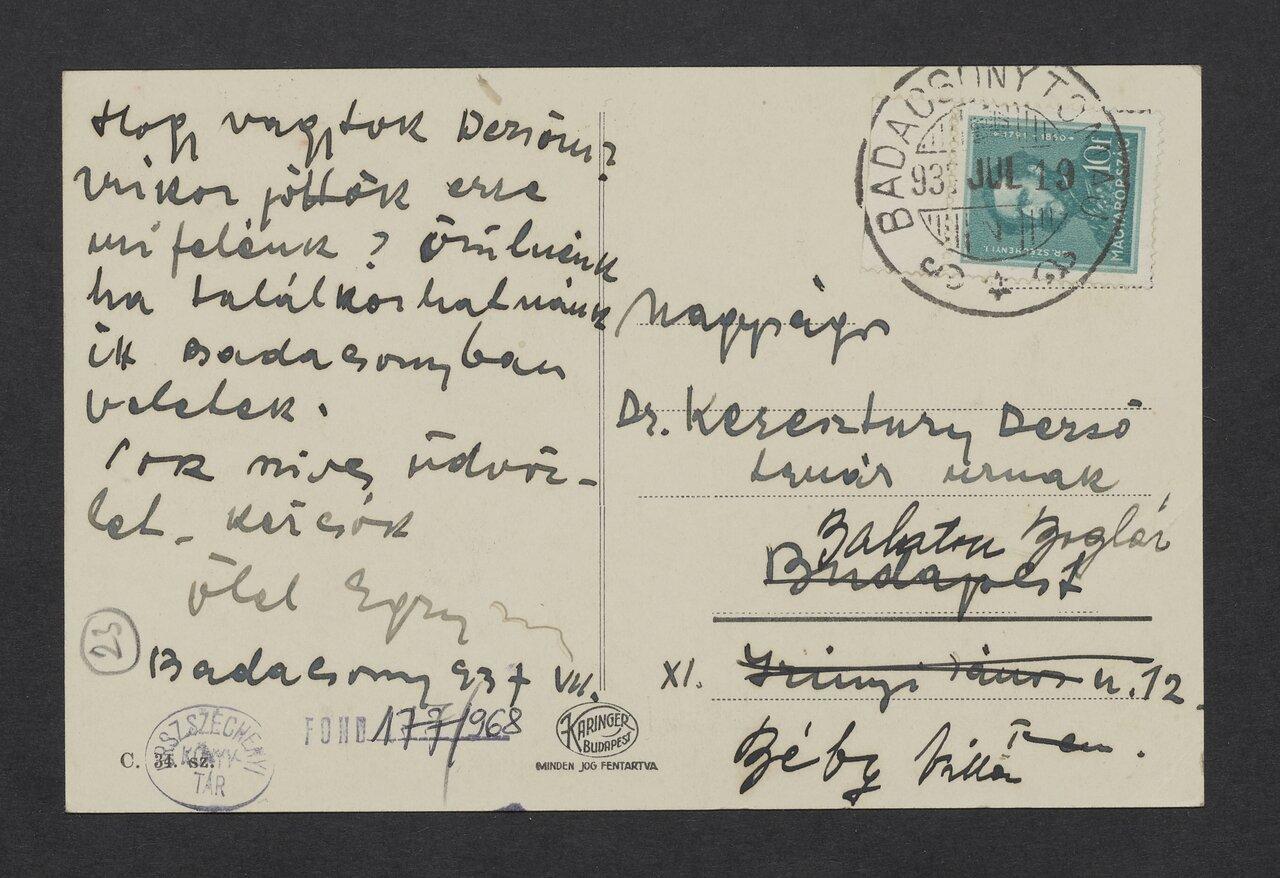 Hogy vagytok Dezsőm?
Mikor jöttök erre
mifelénk? Örülnénk
ha találkozhatnánk
itt Badacsonyban
veletek.
Sok szives üdvöz-
let. Kézcsók
ölel Egry
Badacsony 937 VII.
23
ORSZ. SZÉCHÉNYI
KÖNYV-
TÁR
C. 34. sz.
FOND 177/1968
KARINGER
BUDAPEST
MINDEN JOG FENTARTVA
BADACSONYTOMAJ
937 JUL 19
10f
MAGYARORSZÁG
GR. SZÉCHENYI I.
1791-1860
Nagyságos
Dr. Keresztury Dezső
tanár urnak
Balaton Boglár
Budapest
XI. Irinyi János u. 12.
Béby villa